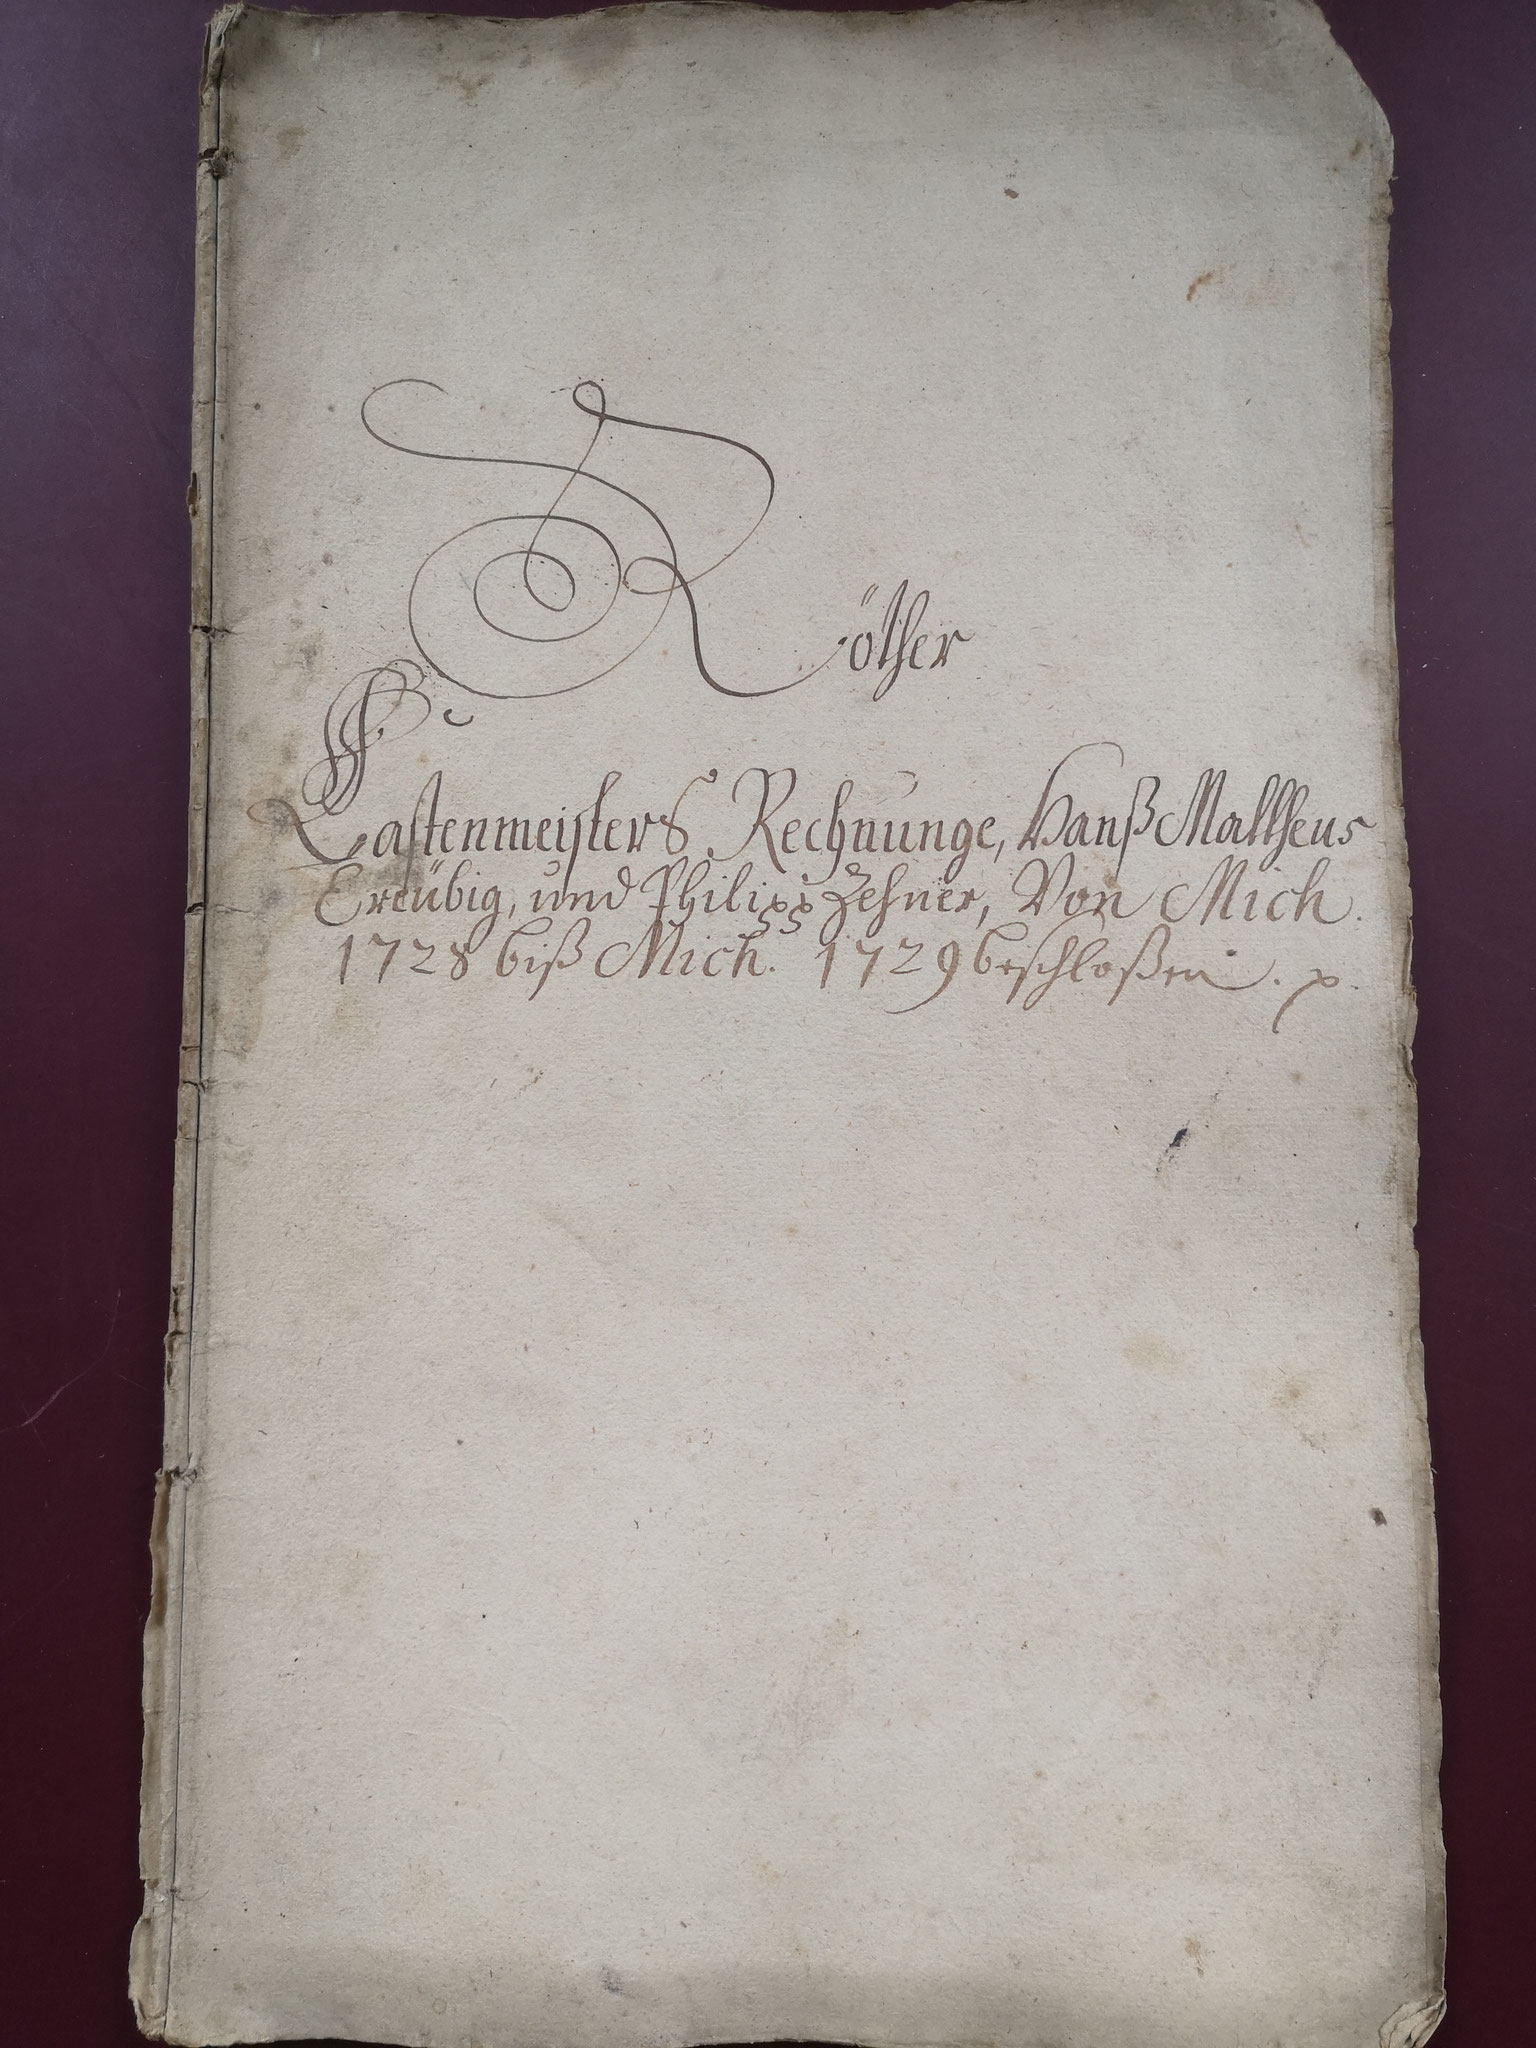 Röther
Castenmeisters Rechnunge, Hanß Mattheus
Ereübig, und Philipp Zehner, Von Mich.
1728 biß Mich. 1729 beschloßen.